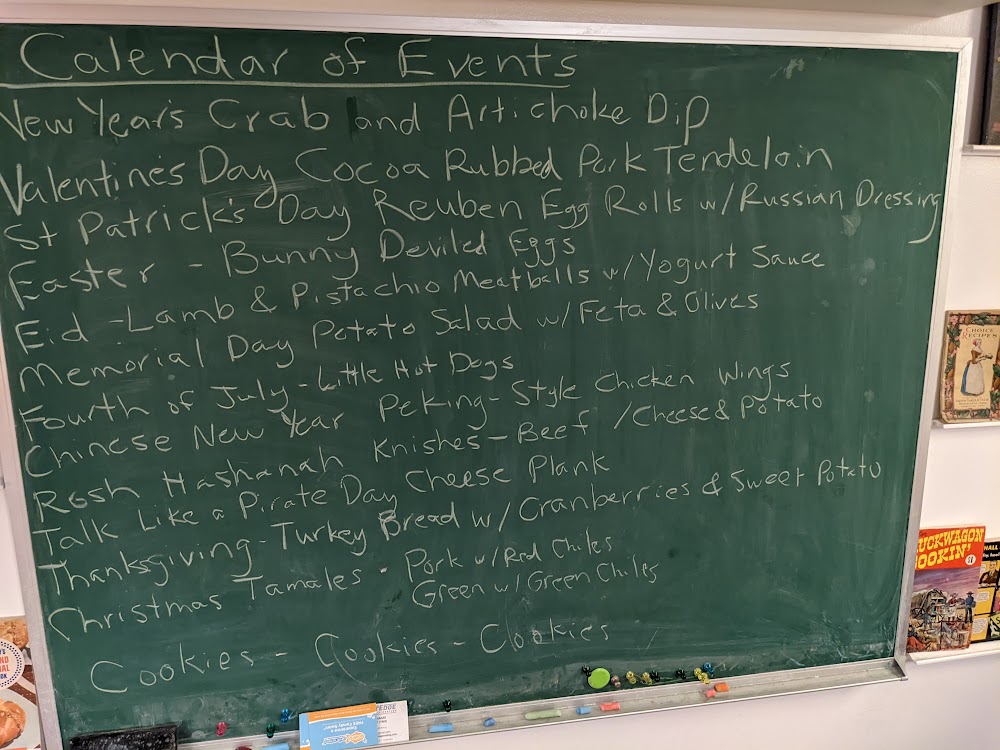 Calendar of Events
New Year's Crab and Artichoke Dip
Valentine's Day Cocoa Rubbed Pork Tendeloin
St Patrick's Day Reuben Egg Rolls w/Russian Dressing
Easter - Bunny Deviled Eggs
Eid - Lamb & Pistachio Meatballs w/Yogurt Sauce
Memorial Day Potato Salad w/ Feta & Olives
Fourth of July - Little Hot Dogs
Chinese New Year Peking-Style Chicken Wings
Rosh Hashanah Knishes - Beef /Cheese & Potato
Talk Like a Pirate Day Cheese Plank
Thanksgiving - Turkey Bread w/ Cranberries & Sweet Potato
Christmas Tamales - Pork w/Red Chiles
Green w/Green Chiles
Cookies - Cookies - Cookies
CHOICE
RECIPES
CHUCKWAGON
COOKIN'